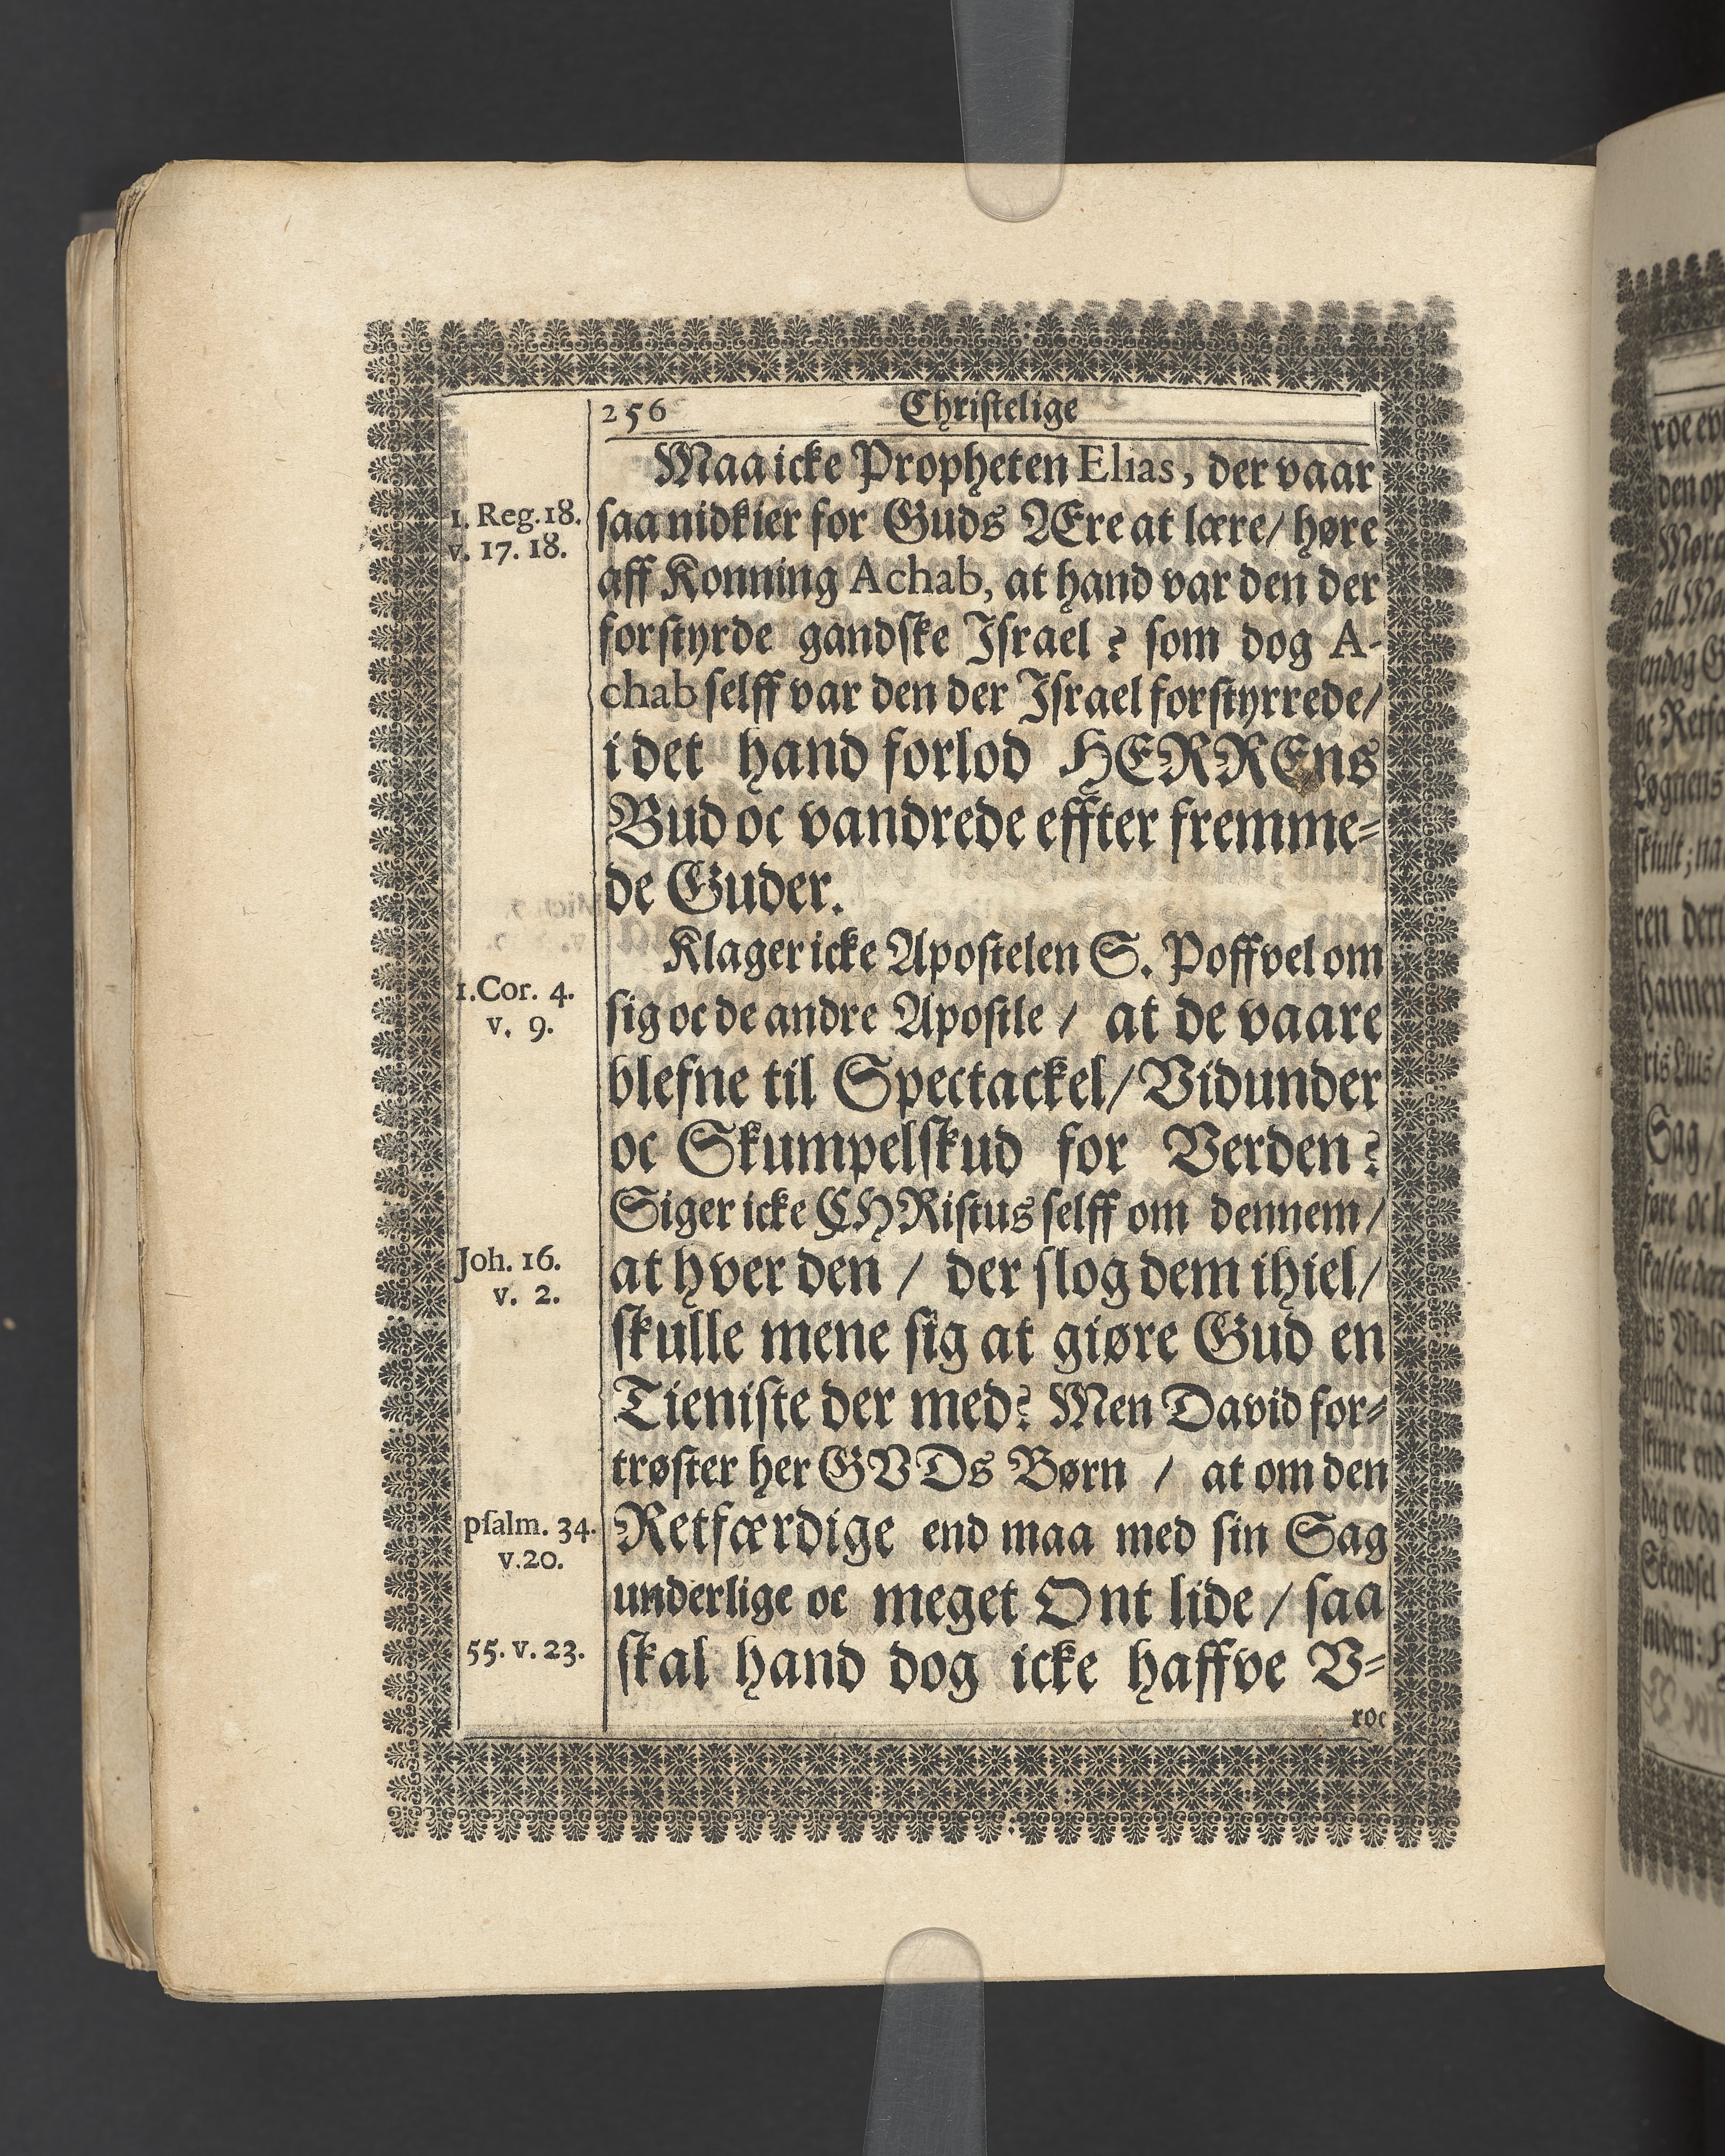 256 Christelige
Maa icke Propheten Elias, der vaar
saa nidkier for Guds Ære at lære/ høre
aff Konning Achab, at hand var den der
forstyrde gandske Israel? som dog A-
chab selff var den der Israel forstyrrede/
i det hand forlod HERRENs
Bud oc vandrede effter fremme-
de Guder.
Klager icke Apostelen S. Poffvel om
sig oc de andre Apostle / at de vaare
blefne til Spectackel/ Vidunder
oc Skumpelskud for Verden?
Siger icke CHRistus selff om dennem/
at hver den / der slog dem ihiel/
skulle mene sig at giøre Gud en
Tieniste der med? Men David for-
trøster her GVDs Børn / at om den
Retfærdige end maa med sin Sag
underlige oc meget Ont lide / saa
skal hand dog icke haffve V-
roe
1. Reg. 18.
v. 17. 18.
1. Cor. 4.
v. 9.
Joh. 16.
v. 2.
psalm. 34.
v. 20.
55. v. 23.